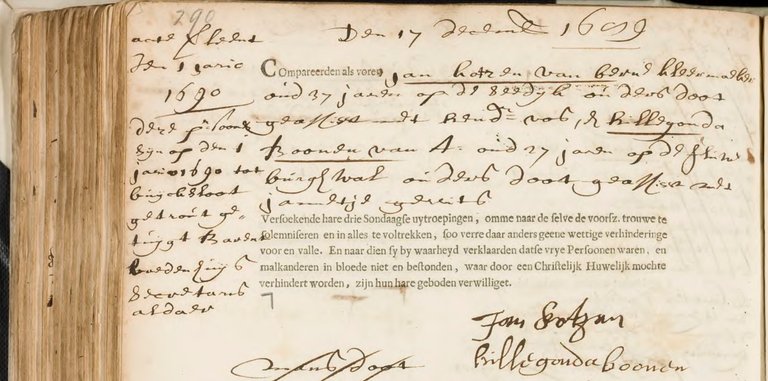 290
acte verleent
den 1 janrio
1690
deze persoone
zijn op den 1
janrio 1690 tot
getrout ge-
tuijgt Barent
secretaris
aldaer
Den 17 decemb 1689
Compareerden als voren jan kotzen van bern kleermaker
oud 37 jaren op de Zeedijk ouders doot
geassist met hend vos, & hillegonda
Boonen van A. oud 27 jaren op de
burghwal ouders doot geassist met
jannetje gerrits
Versoekende hare drie Sondaagse uytroepingen, omme naar de selve de voorsz. trouwe te
solemniseren en in alles te voltrekken, soo verre daar anders geene wettige verhinderinge
voor en valle. En naar dien sy by waarheyd verklaarden datse vrye Persoonen waren, en
malkanderen in bloede niet en bestonden, waar door een Christelijk Huwelijk mochte
verhindert worden, zijn hun hare geboden verwilliget.
Jan Kotzen
hillegonda boonen